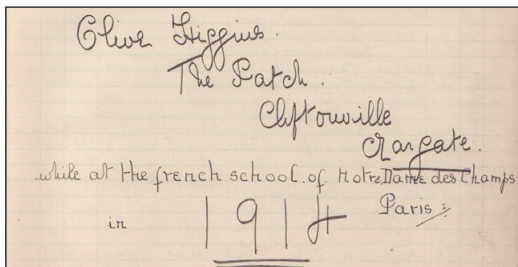 Olive Higgins.
The Patch.
Cliftonville
Margate.
while at the french school of Notre Dame des Champs
in 1914 Paris: